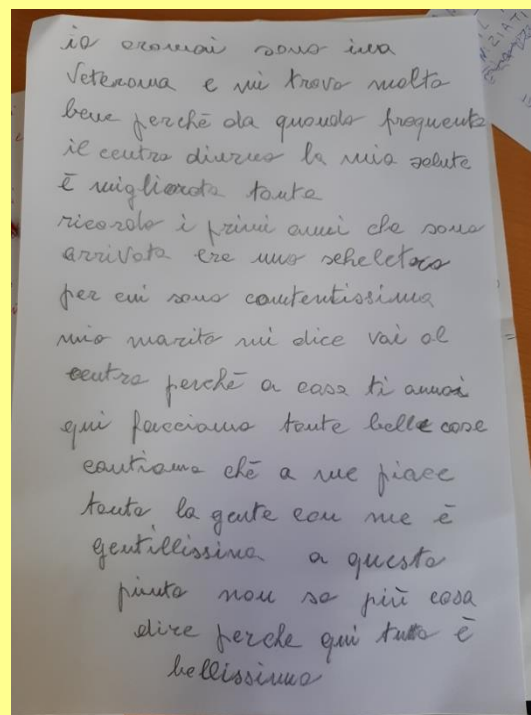 io oramai sono una
Veterana e mi trovo molto
bene perchè da quando frequento
il centro diurno la mia salute
è migliorata tanto
ricordo i primi anni che sono
arrivata ero uno scheletro
per cui sono contentissima
mio marito mi dice vai al
centro perchè a casa ti annoi
qui facciamo tante belle cose
cantiamo chè a me piace
tanto la gente con me è
gentillissima a questo
punto non so più cosa
dire perche qui tutto è
bellissimo